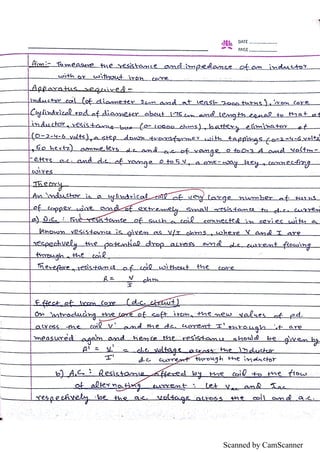 DATE
PAGE
Aim:- To measure the resistance and impedance of an inductor
with or without iron core
Apparatus required-
Inductor coil (of diameter 2cm and at least 7000 turns), iron core
Cylindrical rod of diameter about 1.75 cm and length equal to that of
inductor, resistance box (0-10000 ohms), battery eliminator of
(0-2-4-6 volts), a step down transformer with tappings (0-2-4-6 volts,
50 hertz) ammeters dc and ac of range and voltm-
eters ac and dc of range 0 to 5 V, a one-way key, connecting
wires
Theory
An inductor is a cylindrical coil of very large number of turns
of copper wire and of extremely small resistance to d.c. current
a) D.C: The resistance of such a coil connected in series with a
known resistance is given as V/I ohms, where V and I are
respectively the potential drop across and d.c. current flowing
through the coil.
Therefore, resistand of coil without the core
R = V/I ohm
Effect of iron core (d.c. circuit)
On introducing the core of soft iron, the new values of pd.
across the coil V' and the d.c. current I' through it are
measured again and hence the resistance should be given by
R' = V'/I' = d.c. voltage across the inductor
d.c current through the inductor
b) A.C: Resistance offered by the coil to the flow
of alternating current: Let Vac and Iac
respectively be the a.c. voltage across the coil and a.c.
Scanned by CamScanner